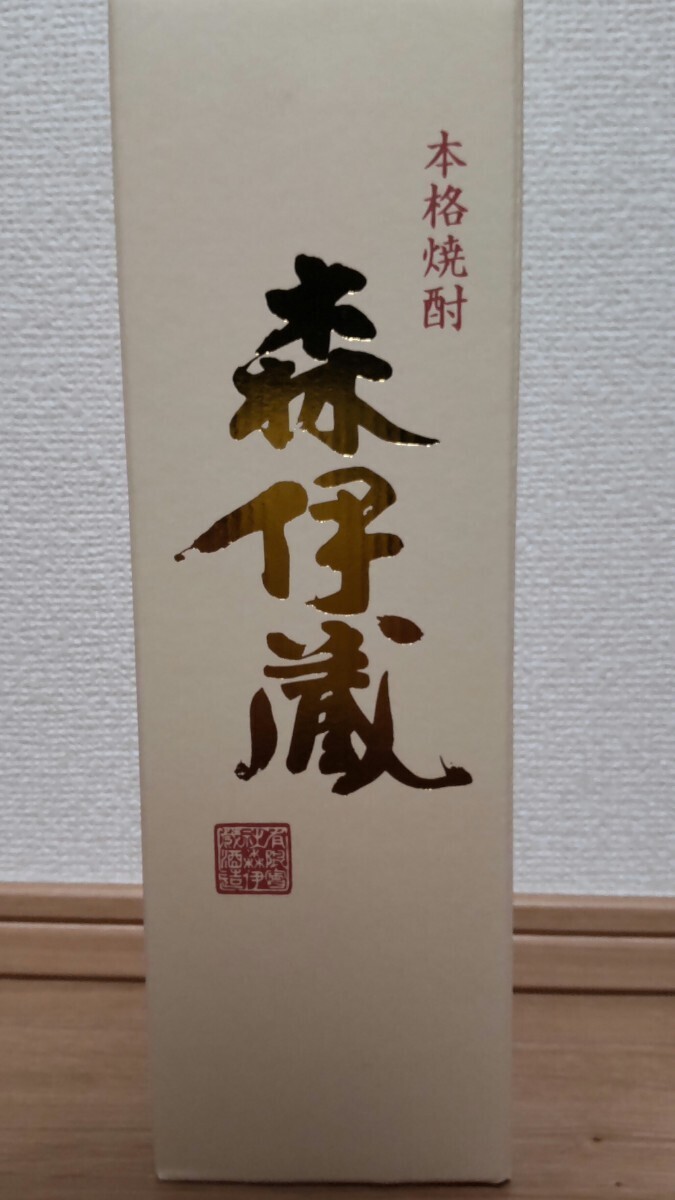 本格焼酎
森伊蔵
有限会
社森伊
蔵酒造